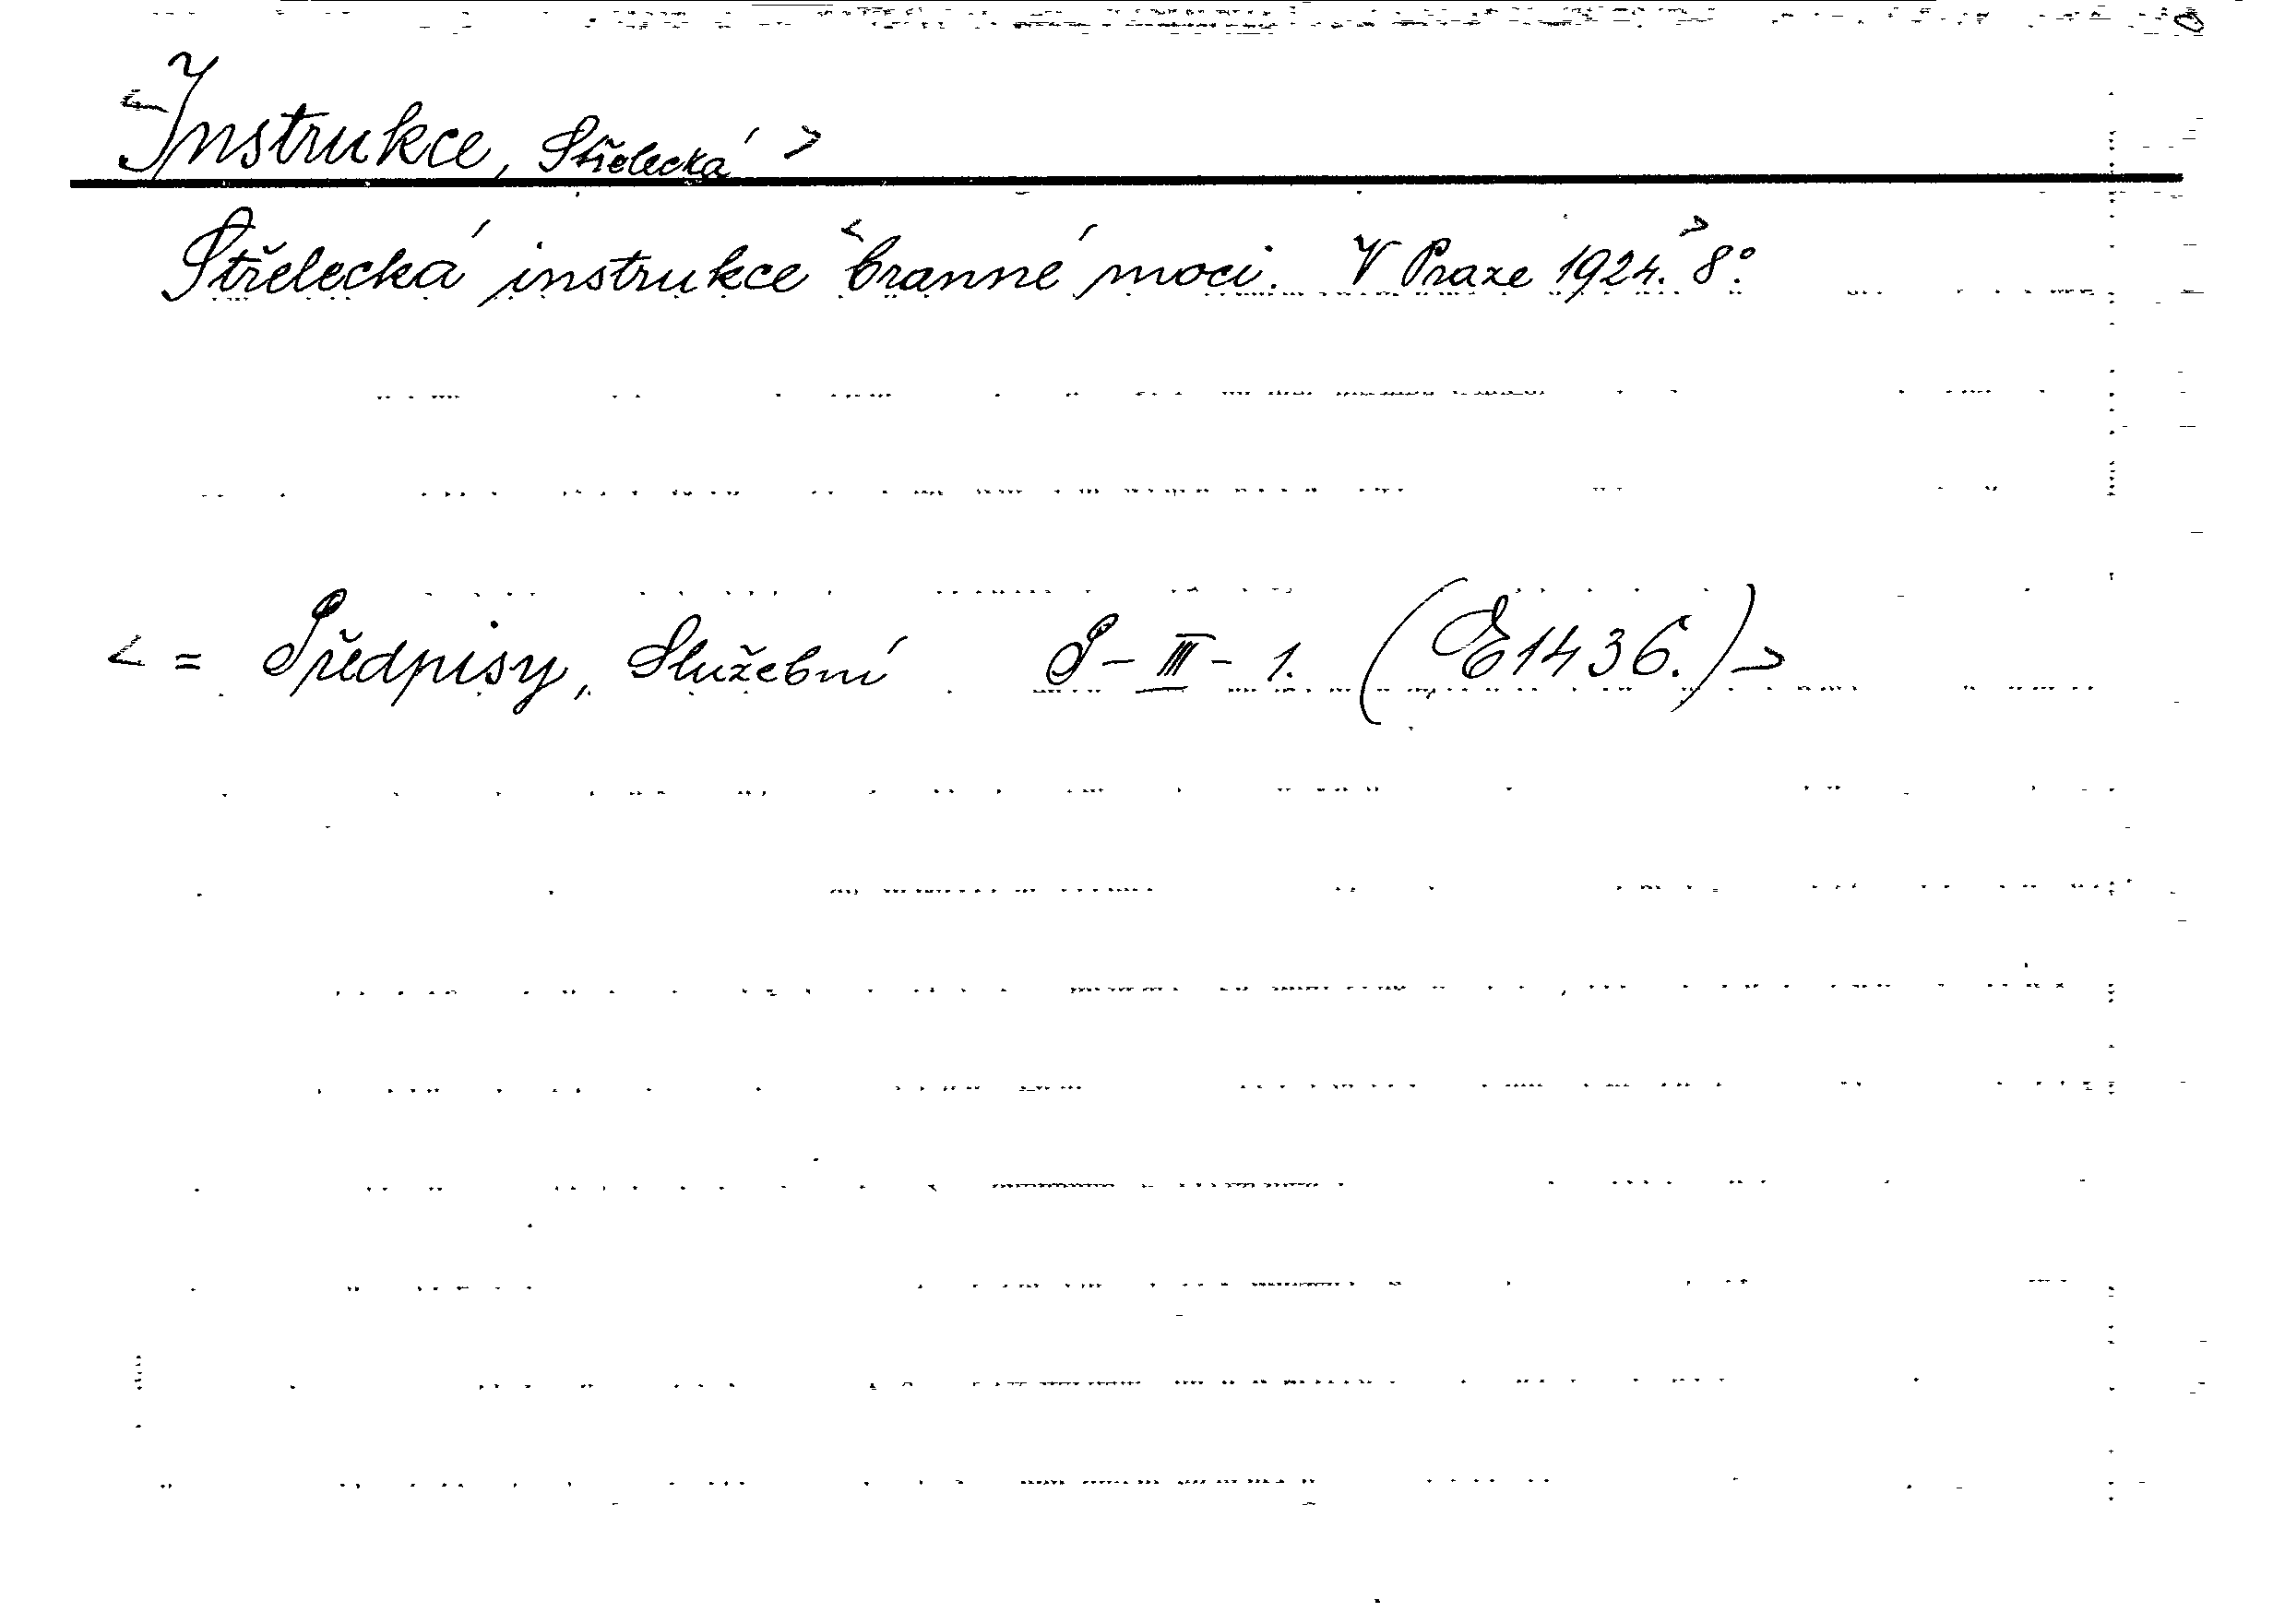 <Instrukce, Střelecká>
Střelecká instrukce <branné moci. V Praze 1924.> 8°.
<= Předpisy, Služební P-III-1. (E1436.)>